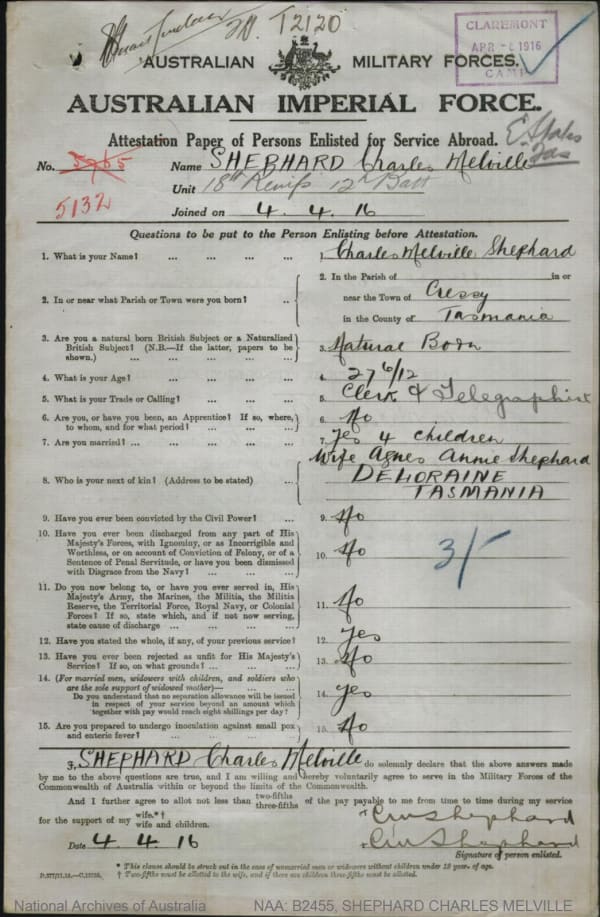 20. T2120
CLAREMONT
APR 1916
CAMP
AUSTRALIAN MILITARY FORCES.
AUSTRALIAN IMPERIAL FORCE.
Attestation Paper of Persons Enlisted for Service Abroad.
Tas
No. 5765 Name SHEPHARD Charles Melville
5132
Unit 18th Reinfs 12th Batt
Joined on 4. 4. 16
Questions to be put to the Person Enlisting before Attestation.
1. What is your Name? ... ... ... ... 1 Charles Melville Shephard
2. In or near what Parish or Town were you born? ..
2. In the Parish of in or
near the Town of Cressy
in the County of Tasmania
3. Are you a natural born British Subject or a Naturalized
British Subject? (N.B.—If the latter, papers to be
shown.) ... ... ... ... ...
3. Natural Born
4. What is your Age? ... ... ... ... 4. 27 6/12
5. What is your Trade or Calling? ... ... ... 5. Clerk & Telegraphist
6. Are you, or have you been, an Apprentice? If so, where,
to whom, and for what period? ... ... ...
6. No
7. Are you married? ... ... ... ... 7. Yes 4 children
8. Who is your next of kin? (Address to be stated) ...
Wife Agnes Annie Shephard
8. DELORAINE
TASMANIA
9. Have you ever been convicted by the Civil Power? ... 9. No
10. Have you ever been discharged from any part of His
Majesty's Forces, with Ignominy, or as Incorrigible and
Worthless, or on account of Conviction of Felony, or of a
Sentence of Penal Servitude, or have you been dismissed
with Disgrace from the Navy? ... ... ...
10. No
3/-
11. Do you now belong to, or have you ever served in, His
Majesty's Army, the Marines, the Militia, the Militia
Reserve, the Territorial Force, Royal Navy, or Colonial
Forces? If so, state which, and if not now serving,
state cause of discharge ... ... ... ...
11. No
12. Have you stated the whole, if any, of your previous service? 12. Yes
13. Have you ever been rejected as unfit for His Majesty's
Service? If so, on what grounds? ... ... ...
13. No
14. (For married men, widowers with children, and soldiers who
are the sole support of widowed mother)—
Do you understand that no separation allowance will be issued
in respect of your service beyond an amount which
together with pay would reach eight shillings per day?
14. Yes
15. Are you prepared to undergo inoculation against small pox
and enteric fever? ... ... ... ...
15. No
I, SHEPHARD Charles Melville do solemnly declare that the above answers made
by me to the above questions are true, and I am willing and hereby voluntarily agree to serve in the Military Forces of the
Commonwealth of Australia within or beyond the limits of the Commonwealth.
And I further agree to allot not less than two-fifths three-fifths of the pay payable to me from time to time during my service
for the support of my wife.*† wife and children.
CM Shephard
Date 4. 4. 16
CM Shephard
Signature of person enlisted.
* This clause should be struck out in the case of unmarried men or widowers without children under 18 years of age.
† Two-fifths must be allotted to the wife, and if there are children three-fifths must be allotted.
National Archives of Australia
NAA: B2455, SHEPHARD CHARLES MELVILLE